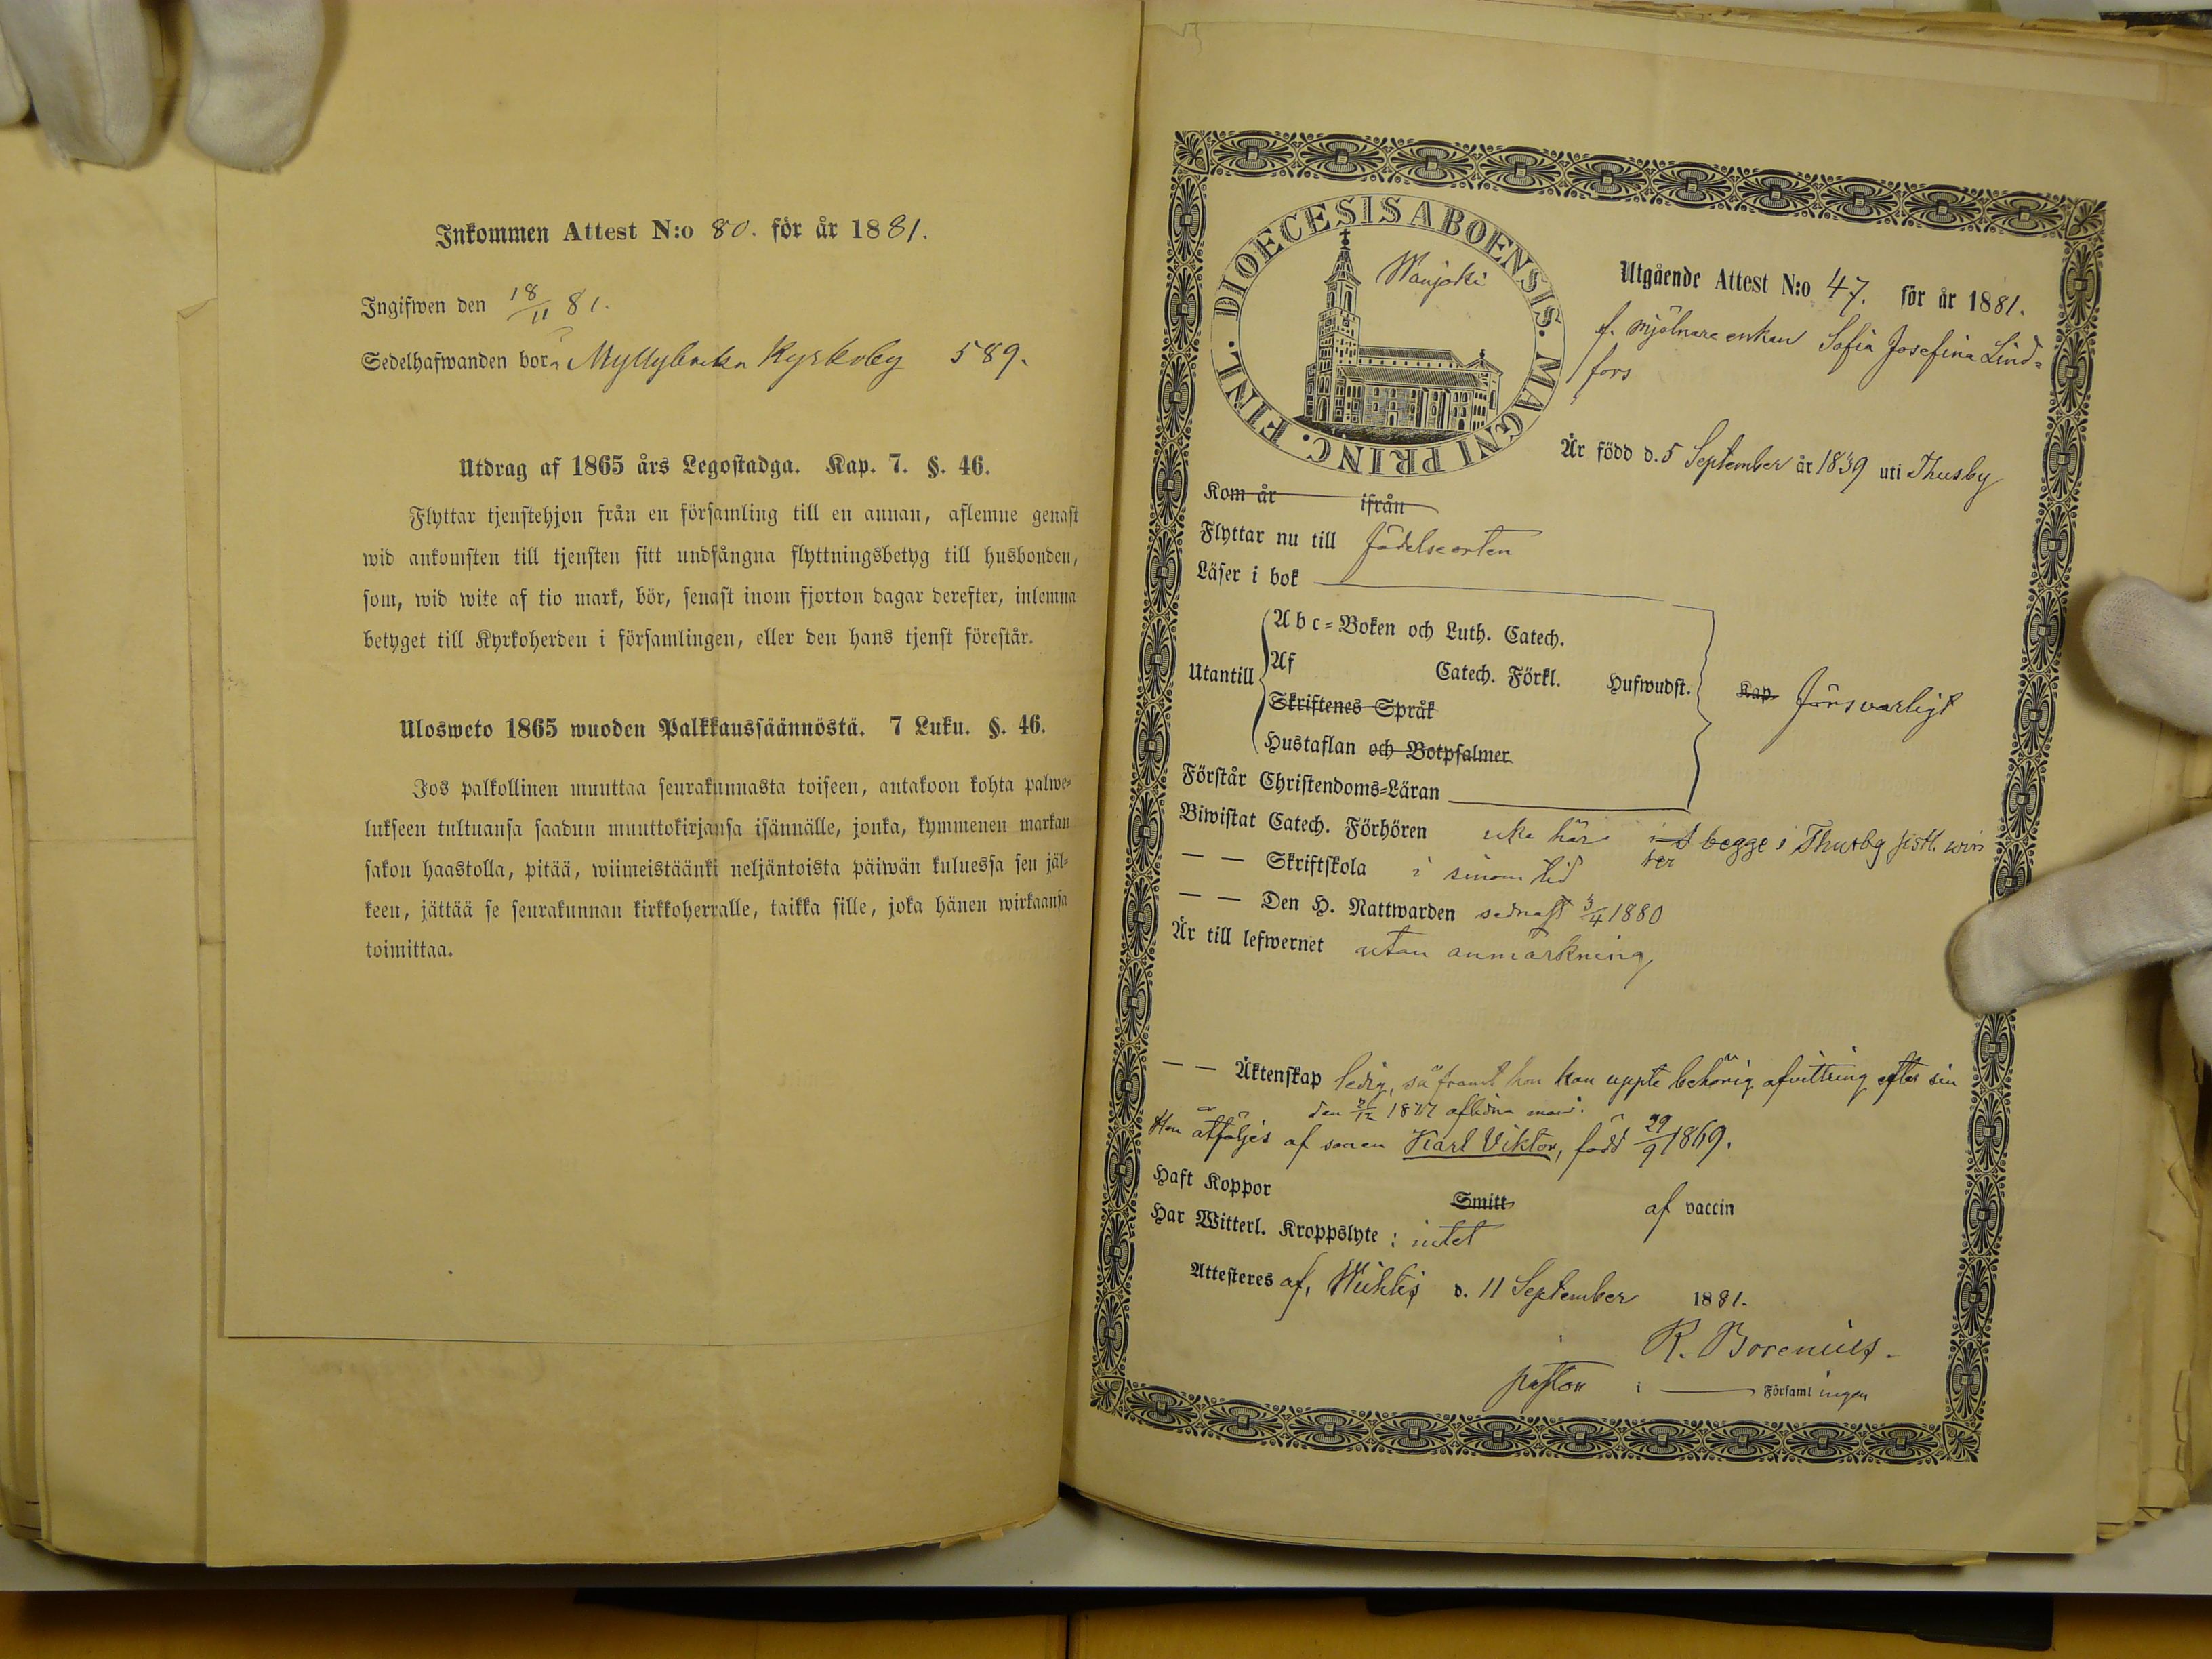 Inkommen Attest N:o 80. för år 1881.
Ingifwen den 18/11 81.
Sedelhafwanden bor Myllybacka Kyrkoby 589.
Utdrag af 1865 års Legostadga. Kap. 7. §. 46.
Flyttar tjenstehjon från en församling till en annan, aflemne genast
wid ankomsten till tjensten sitt undfångna flyttningsbetyg till husbonden,
som, wid wite af tio mark, bör, senast inom fjorton dagar derefter, inlemna
betyget till Kyrkoherden i församlingen, eller den hans tjenst förestår.
Ulosweto 1865 wuoden Palkkaussäännöstä. 7 Luku. §. 46.
Jos palkollinen muuttaa seurakunnasta toiseen, antakoon kohta palwe-
lukseen tultuansa saadun muuttokirjansa isännälle, jonka, kymmenen markan
sakon haastolla, pitää, wiimeistäänki neljäntoista päiwän kuluessa sen jäl-
keen, jättää se seurakunnan kirkkoherralle, taikka sille, joka hänen wirkaansa
toimittaa.
DIOECESIS ABOENSIS. MAGNI PRINC. FINL.
Wanjoki
Utgående Attest N:o 47. för år 1881.
f. mjölnare enkan Sofia Josefina Lind-
fors
Är född d. 5 September år 1839 uti Thusby
Kom år ifrån
Flyttar nu till födelseorten
Läser i bok
Utantill
Abc-Boken och Luth. Catech.
Af Catech. Förkl. Hufwudst. Kap. försvarligt
Skriftenes Språk
Hustaflan och Botpsalmer
Förstår Christendoms-Läran
Biwistat Catech. Förhören icke här begge i Thusby sistl. vin
ter
— — Skriftskola i sinom tid
— — Den H. Nattwarden sednast 3/4 1880
Är till lefwernet utan anmärkning
— — Äktenskap ledig, såframt hon kan uppte behörig afvittring efter sin
den 2/12 1877 aflidna man.
Hon åtföljes af sonen Karl Viktor, född 29/9 1869.
Haft Koppor Smitt af vaccin
Har Witterl. Kroppslyte: intet
Attesteres af, Wichtis d. 11 September 1881.
R. Borenius.
pastor i — Församlingen